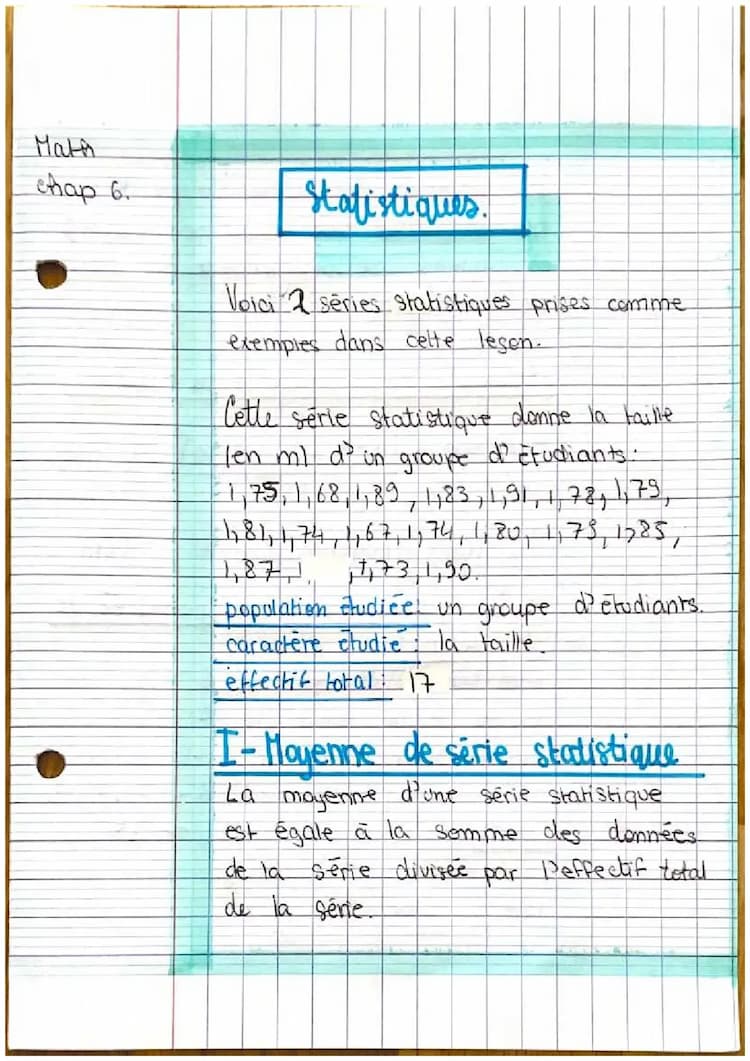 Math
chap 6.
Statistiques.
Voici 2 séries statistiques prises comme
exemples dans cette leçon.
Cette série statistique donne la taille
(en m) d'un groupe d'étudiants:
1,75, 1,68, 1,89, 1,83, 1,91, 1,78, 1,79,
1,81, 1,74, 1,67, 1,74, 1,80, 1,85,
1,87, 1,73, 1,90.
population étudiée: un groupe d'étudiants.
caractère étudié: la taille.
effectif total: 17
I- Moyenne de série statistique
La moyenne d'une série statistique
est égale à la somme des données
de la série divisée par l'effectif total
de la série.